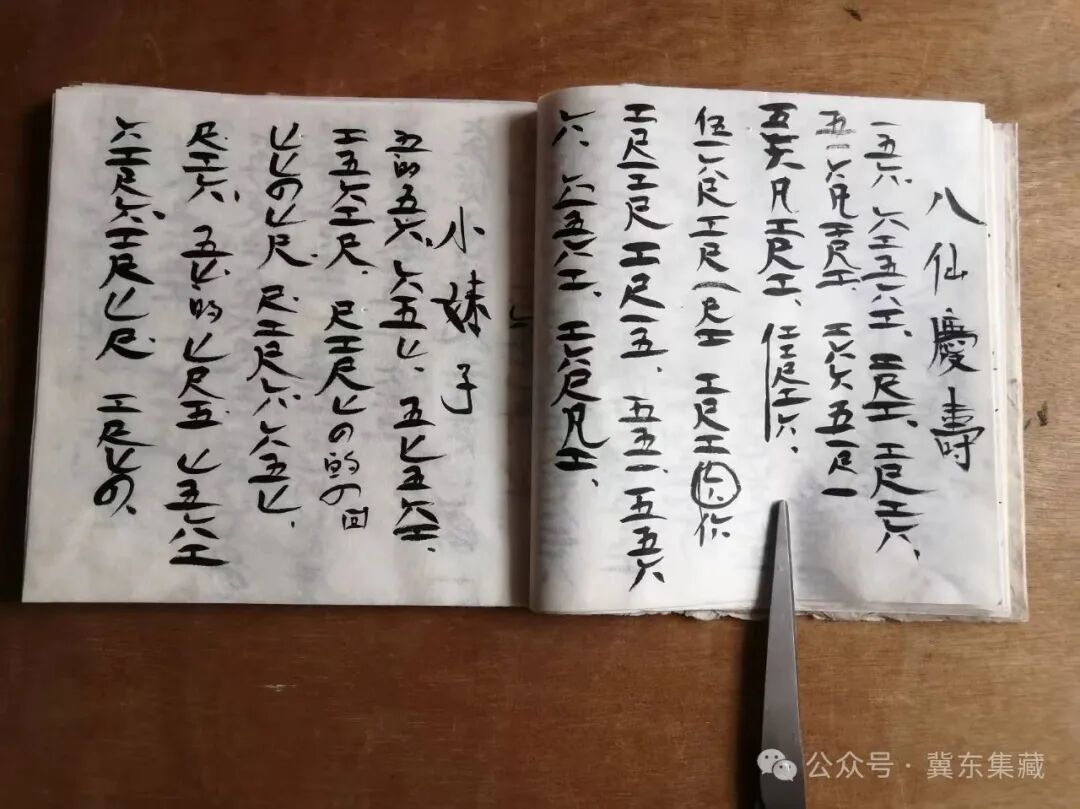 八仙慶壽
一五六、六工五六工、工尺工、工尺工六、
五一六凡工尺工、工六六五一尺一
五六凡工尺工、仩工尺工六、
伍一六尺工尺一尺工 工尺工
工尺工工尺 工尺一五、五五一、一五五六
六、六五六工、工六尺凡工、
小妹子
五的五六、六五𠃊、五𠃊五六工、
工五六工尺、尺工尺𠃊の的の回
𠃊𠃊の𠃊尺、尺工尺六六五𠃊、
尺工六、五𠃊的𠃊尺五𠃊五六工
六工尺六工尺𠃊尺、工尺𠃊の、
公众号·冀东集藏